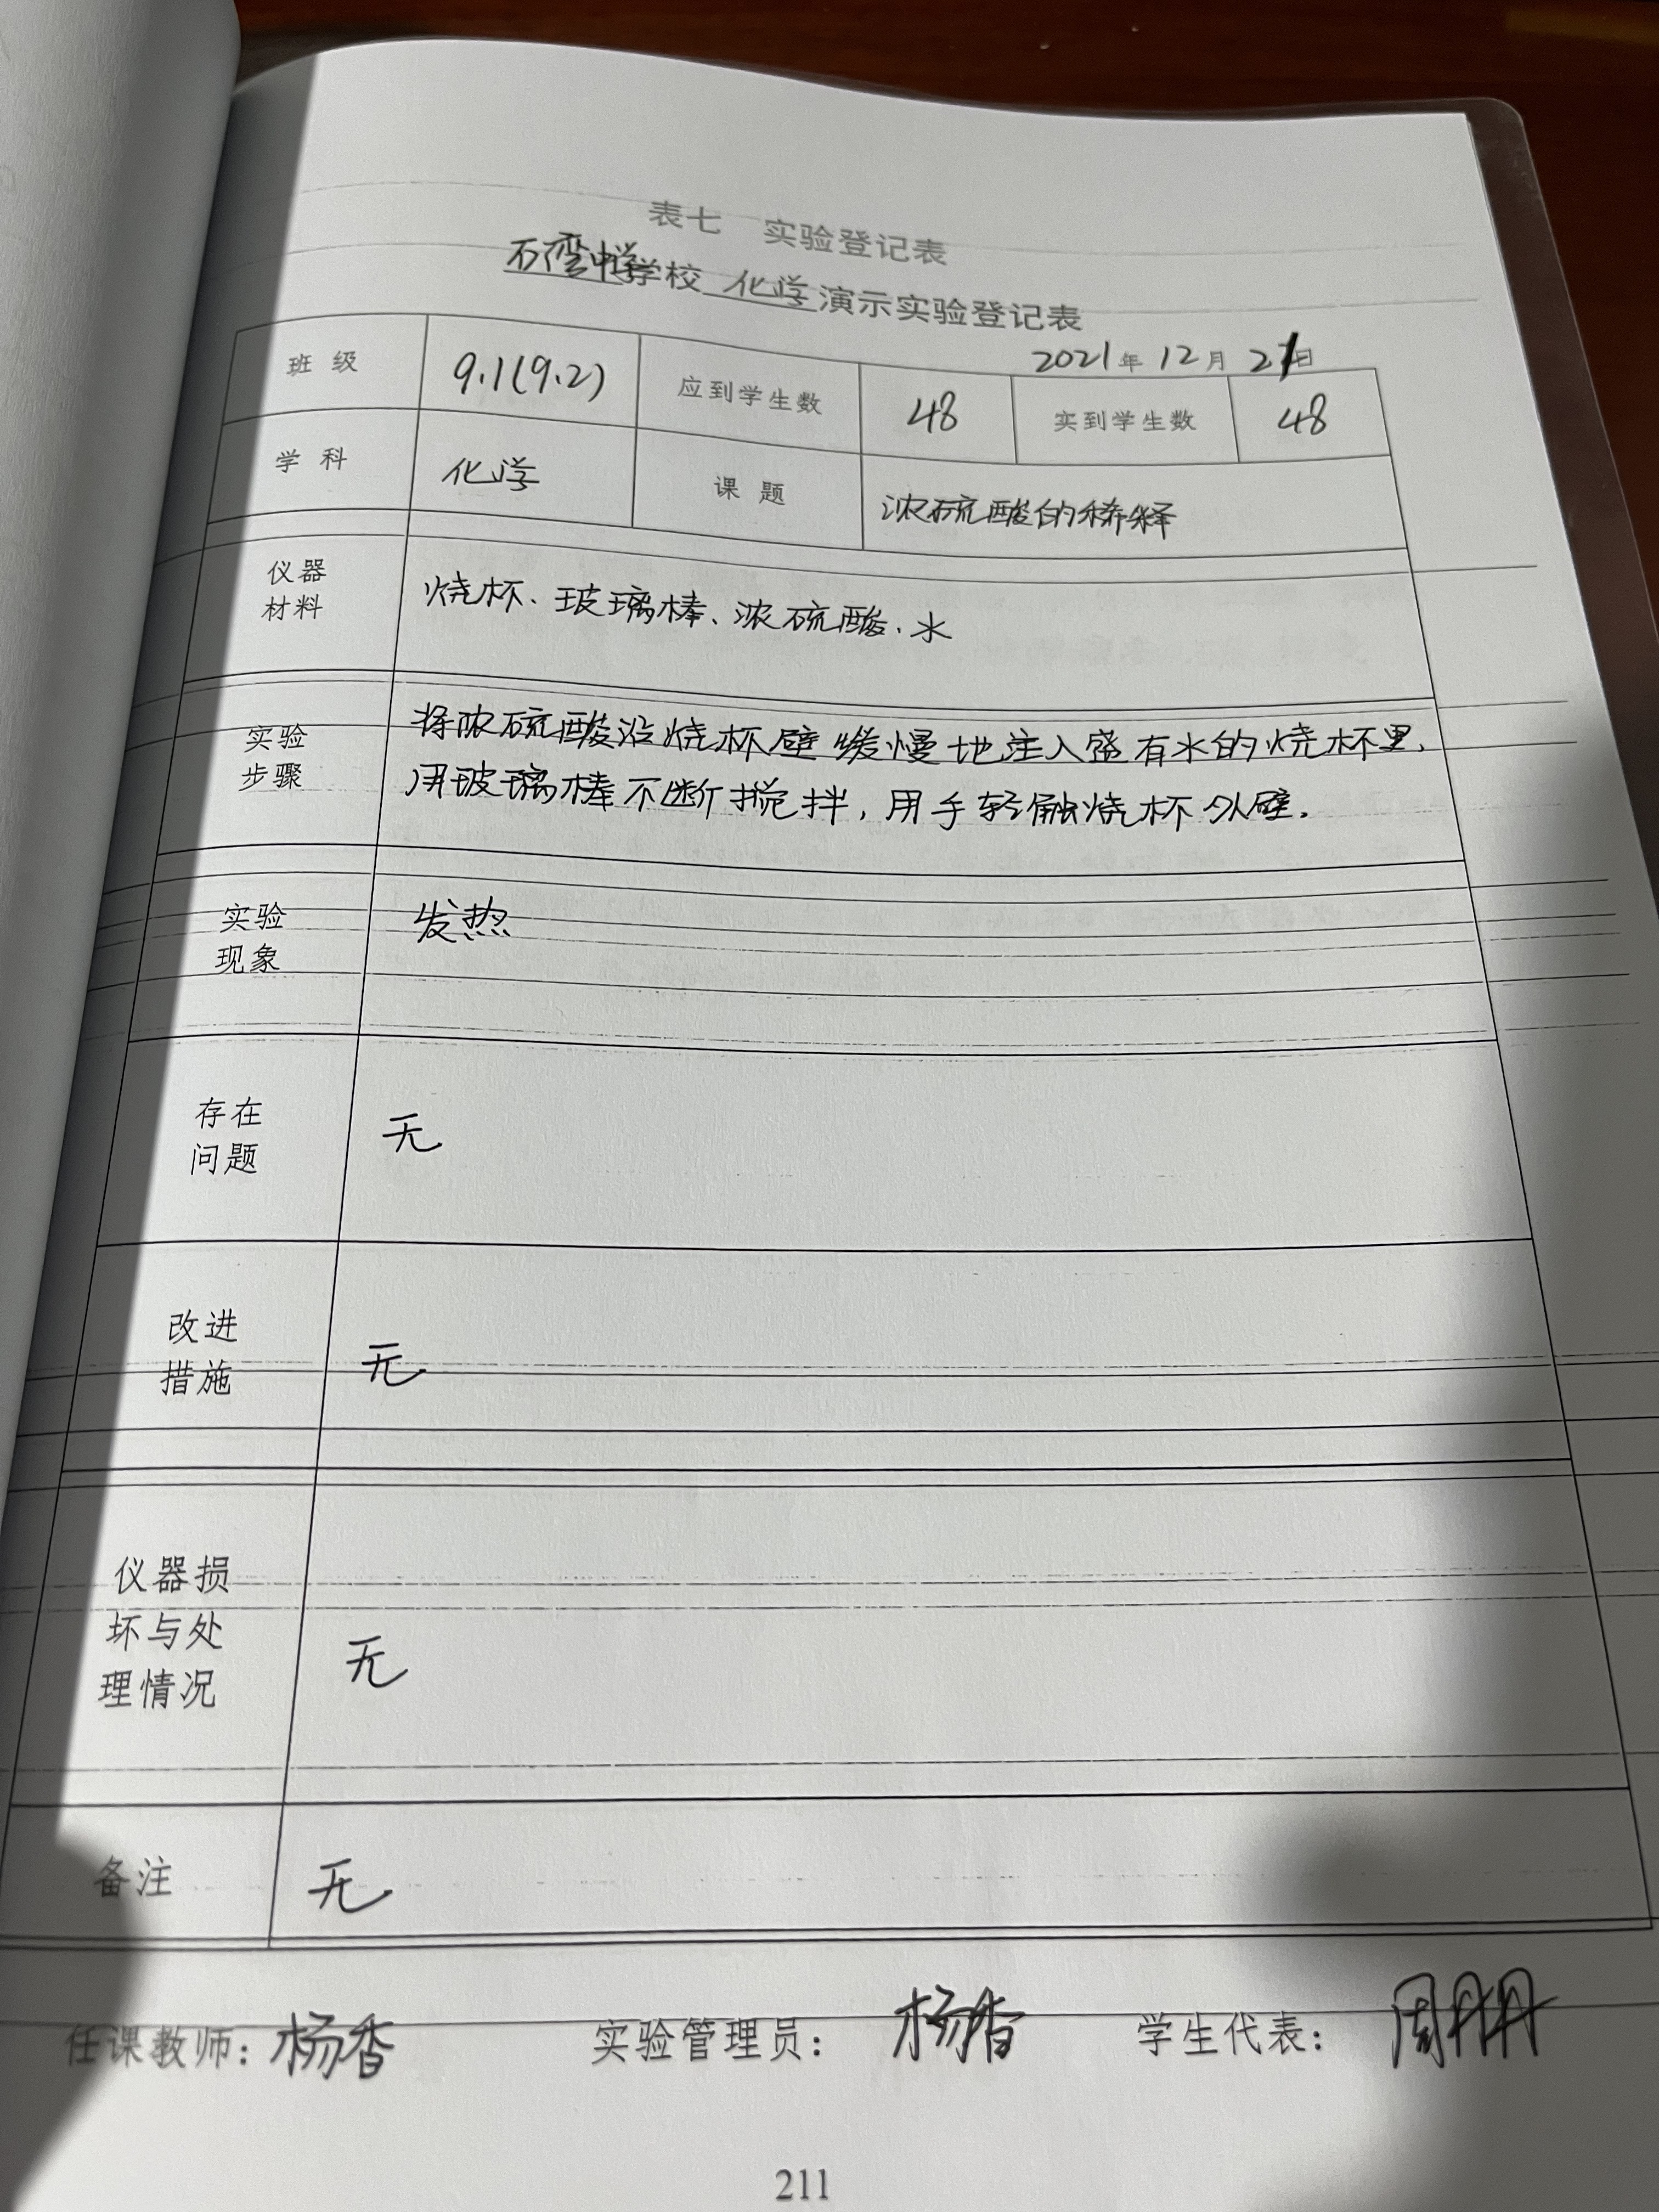 表七 实验登记表
石湾中学学校 化学 演示实验登记表
2021年12月21日
班级 9.1(9.2) 应到学生数 48 实到学生数 48
学科 化学 课题 浓硫酸的稀释
仪器
材料
烧杯、玻璃棒、浓硫酸、水
实验
步骤
将浓硫酸沿烧杯壁缓慢地注入盛有水的烧杯里,
用玻璃棒不断搅拌,用手轻触烧杯外壁.
实验
现象
发热
存在
问题
无
改进
措施
无
仪器损
坏与处
理情况
无
备注 无
任课教师:杨香 实验管理员:杨香 学生代表:周丹丹
211